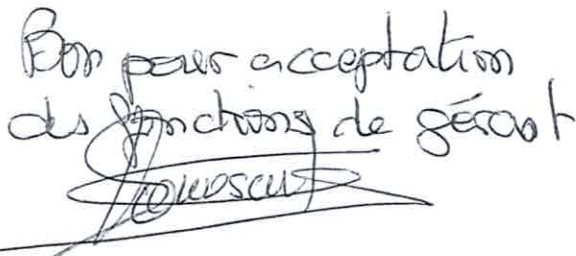 Bon pour acceptation
des fonctions de gérant